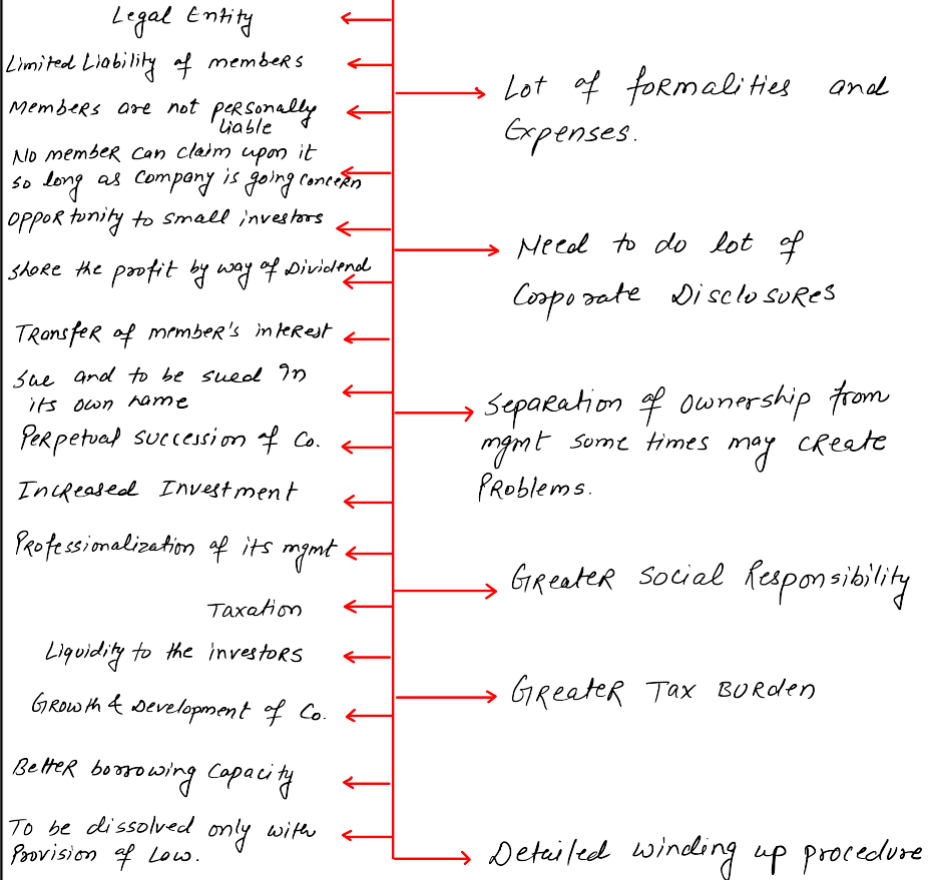 Legal Entity
Limited Liability of members
Members are not personally
liable
No member can claim upon it
so long as Company is going concern
opportunity to small investors
share the profit by way of Dividend
Transfer of member's interest
Sue and to be sued In
its own name
Perpetual succession of Co.
Increased Investment
Professionalization of its mgmt
Taxation
Liquidity to the investors
Growth & Development of Co.
Better borrowing Capacity
To be dissolved only with
Provision of Law.
Lot of formalities and
Expenses.
Need to do lot of
Corporate Disclosures
Separation of ownership from
mgmt some times may create
Problems.
Greater Social Responsibility
Greater Tax Burden
Detailed winding up procedure